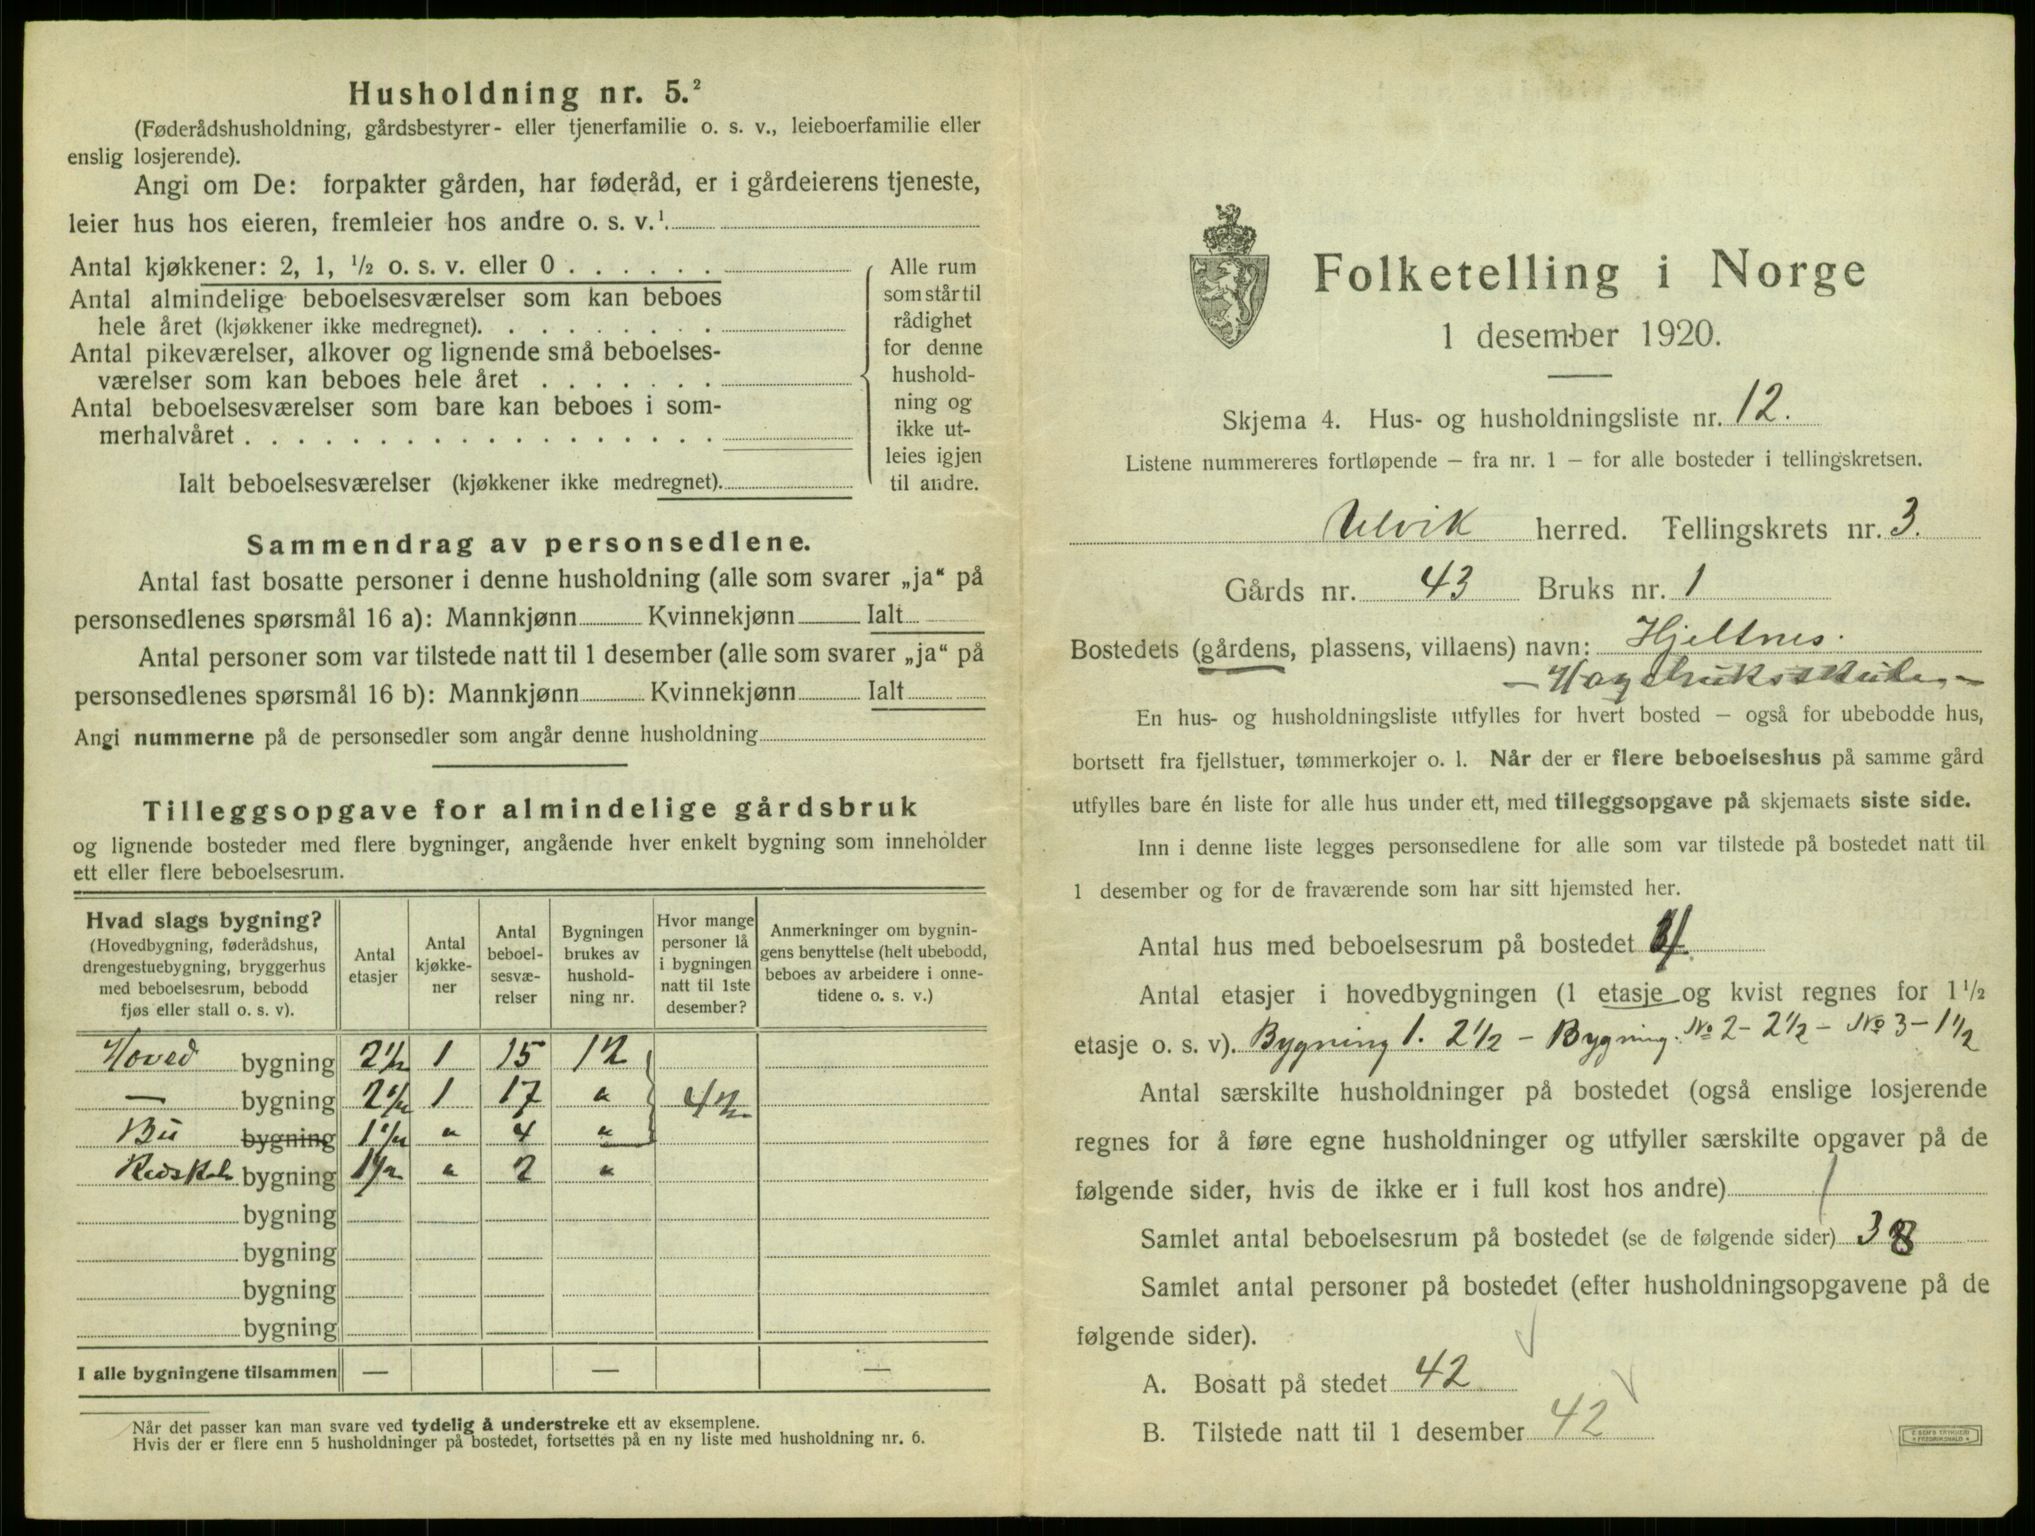 Husholdning nr. 5.²
(Føderådshusholdning, gårdsbestyrer- eller tjenerfamilie o. s. v., leieboerfamilie eller
enslig losjerende).
Angi om De: forpakter gården, har føderåd, er i gårdeierens tjeneste,
leier hus hos eieren, fremleier hos andre o. s. v.¹
Antal kjøkkener: 2, 1, ½ o. s. v. eller 0
Antal almindelige beboelsesværelser som kan beboes
hele året (kjøkkener ikke medregnet).
Antal pikeværelser, alkover og lignende små beboelses-
værelser som kan beboes hele året
Antal beboelsesværelser som bare kan beboes i som-
merhalvåret
Ialt beboelsesværelser (kjøkkener ikke medregnet).
Alle rum
som står til
rådighet
for denne
hushold-
ning og
ikke ut-
leies igjen
til andre.
Sammendrag av personsedlene.
Antal fast bosatte personer i denne husholdning (alle som svarer „ja“ på
personsedlenes spørsmål 16 a): Mannkjønn Kvinnekjønn Ialt
Antal personer som var tilstede natt til 1 desember (alle som svarer „ja“ på
personsedlenes spørsmål 16 b): Mannkjønn Kvinnekjønn Ialt
Angi nummerne på de personsedler som angår denne husholdning
Tilleggsopgave for almindelige gårdsbruk
og lignende bosteder med flere bygninger, angående hver enkelt bygning som inneholder
ett eller flere beboelsesrum.
Hvad slags bygning?
(Hovedbygning, føderådshus,
drengestuebygning, bryggerhus
med beboelsesrum, bebodd
fjøs eller stall o. s. v).
Antal
etasjer
Antal
kjøkke-
ner
Antal
beboel-
sesvæ-
relser
Bygningen
brukes av
hushold-
ning nr.
Hvor mange
personer lå
i bygningen
natt til 1ste
desember?
Anmerkninger om bygnin-
gens benyttelse (helt ubebodd,
beboes av arbeidere i onne-
tidene o. s. v.)
Hoved bygning 2½ 1 15 12
— bygning 2½ 1 17 " 42
Bu bygning 1½ " 4 "
Redskab bygning 1½ " 2 "
bygning
bygning
bygning
bygning
I alle bygningene tilsammen — — —
Når det passer kan man svare ved tydelig å understreke ett av eksemplene.
Hvis der er flere enn 5 husholdninger på bostedet, fortsettes på en ny liste med husholdning nr. 6.
Folketelling i Norge
1 desember 1920.
Skjema 4. Hus- og husholdningsliste nr. 12.
Listene nummereres fortløpende – fra nr. 1 – for alle bosteder i tellingskretsen.
Ulvik herred. Tellingskrets nr. 3.
Gårds nr. 43 Bruks nr. 1
Bostedets (gårdens, plassens, villaens) navn: Hjeltnes.
— Hagebruksskule. —
En hus- og husholdningsliste utfylles for hvert bosted – også for ubebodde hus,
bortsett fra fjellstuer, tømmerkojer o. l. Når der er flere beboelseshus på samme gård
utfylles bare én liste for alle hus under ett, med tilleggsopgave på skjemaets siste side.
Inn i denne liste legges personsedlene for alle som var tilstede på bostedet natt til
1 desember og for de fraværende som har sitt hjemsted her.
Antal hus med beboelsesrum på bostedet 4
Antal etasjer i hovedbygningen (1 etasje og kvist regnes for 1½
etasje o. s. v). Bygning 1. 2½ – Bygning. No 2 – 2½ – No 3 – 1½
Antal særskilte husholdninger på bostedet (også enslige losjerende
regnes for å føre egne husholdninger og utfyller særskilte opgaver på de
følgende sider, hvis de ikke er i full kost hos andre) 1
Samlet antal beboelsesrum på bostedet (se de følgende sider) 38
Samlet antal personer på bostedet (efter husholdningsopgavene på de
følgende sider).
A. Bosatt på stedet 42
B. Tilstede natt til 1 desember 42